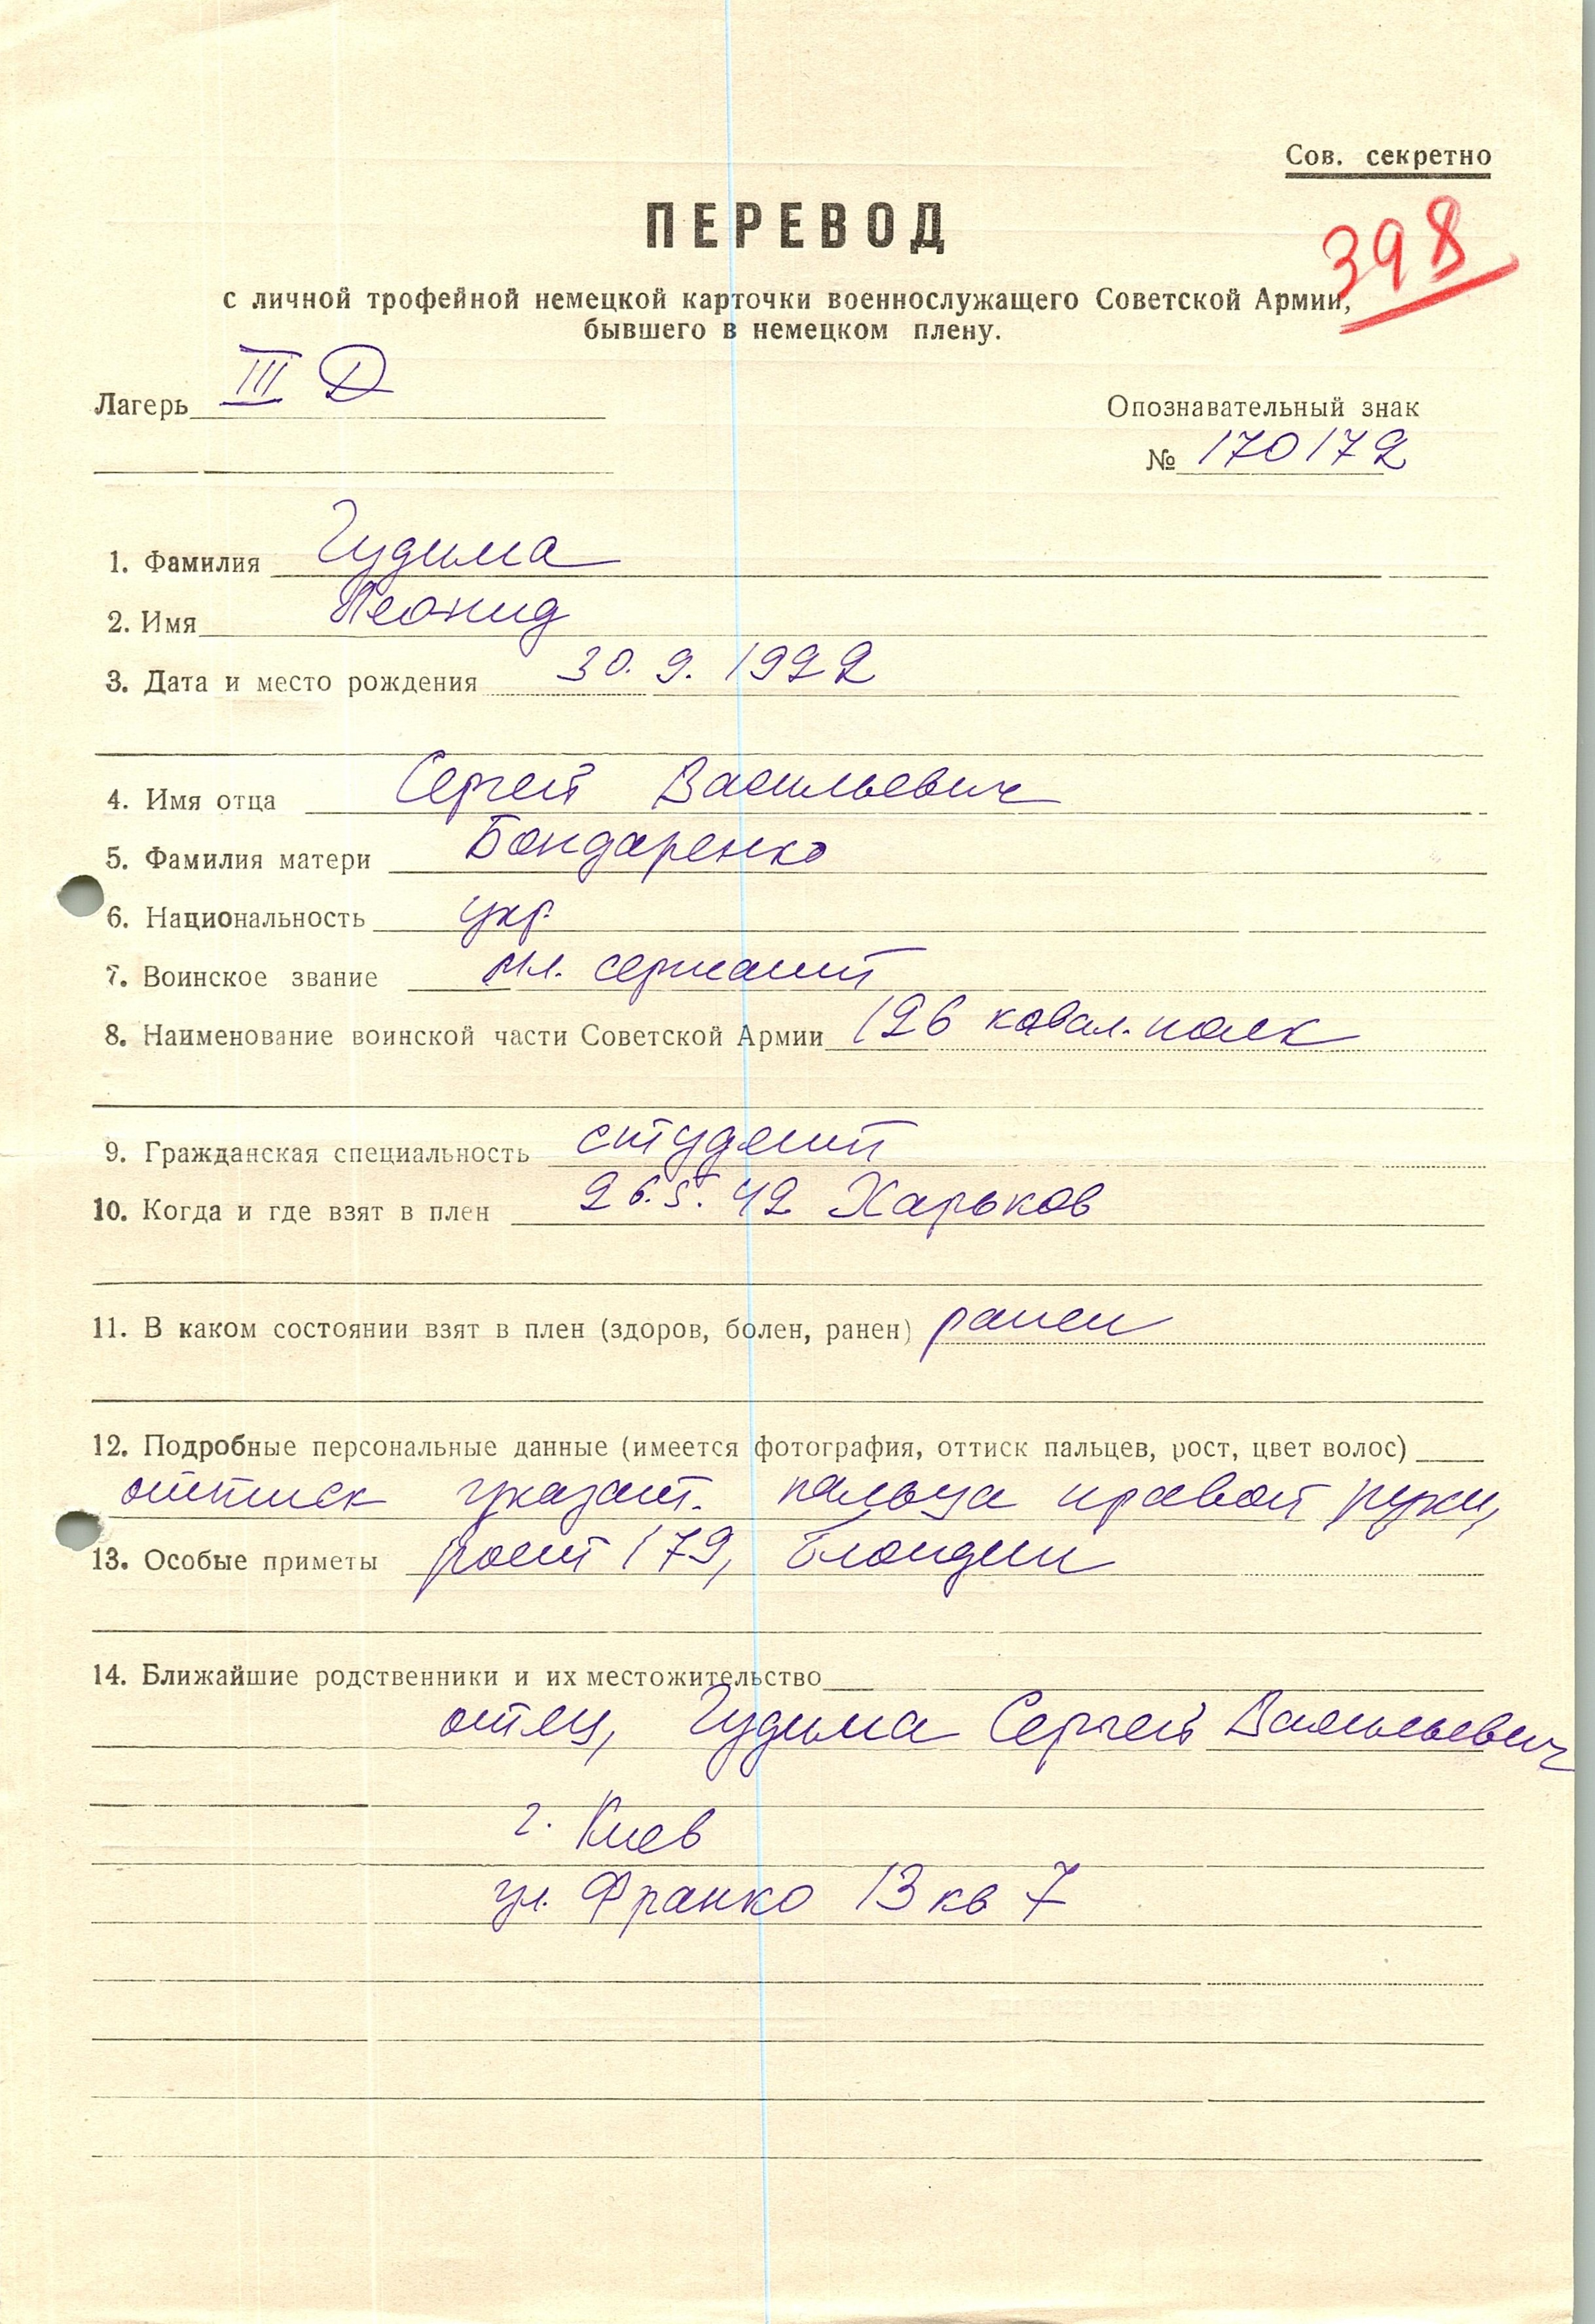 Сов. секретно
ПЕРЕВОД
398
с личной трофейной немецкой карточки военнослужащего Советской Армии,
бывшего в немецком плену.
Лагерь III Д
Опознавательный знак
№ 170172
1. Фамилия Гудима
2. Имя Леонид
3. Дата и место рождения 30.9.1922
4. Имя отца Сергей Васильевич
5. Фамилия матери Бондаренко
6. Национальность укр.
7. Воинское звание мл. сержант
8. Наименование воинской части Советской Армии 126 кавал. полк
9. Гражданская специальность студент
10. Когда и где взят в плен 26.5.42 Харьков
11. В каком состоянии взят в плен (здоров, болен, ранен) ранен
12. Подробные персональные данные (имеется фотография, оттиск пальцев, рост, цвет волос)
оттиск указат. пальца правой руки,
13. Особые приметы рост 179, блондин
14. Ближайшие родственники и их местожительство
отец, Гудима Сергей Васильевич
г. Киев
ул. Франко 13 кв 7